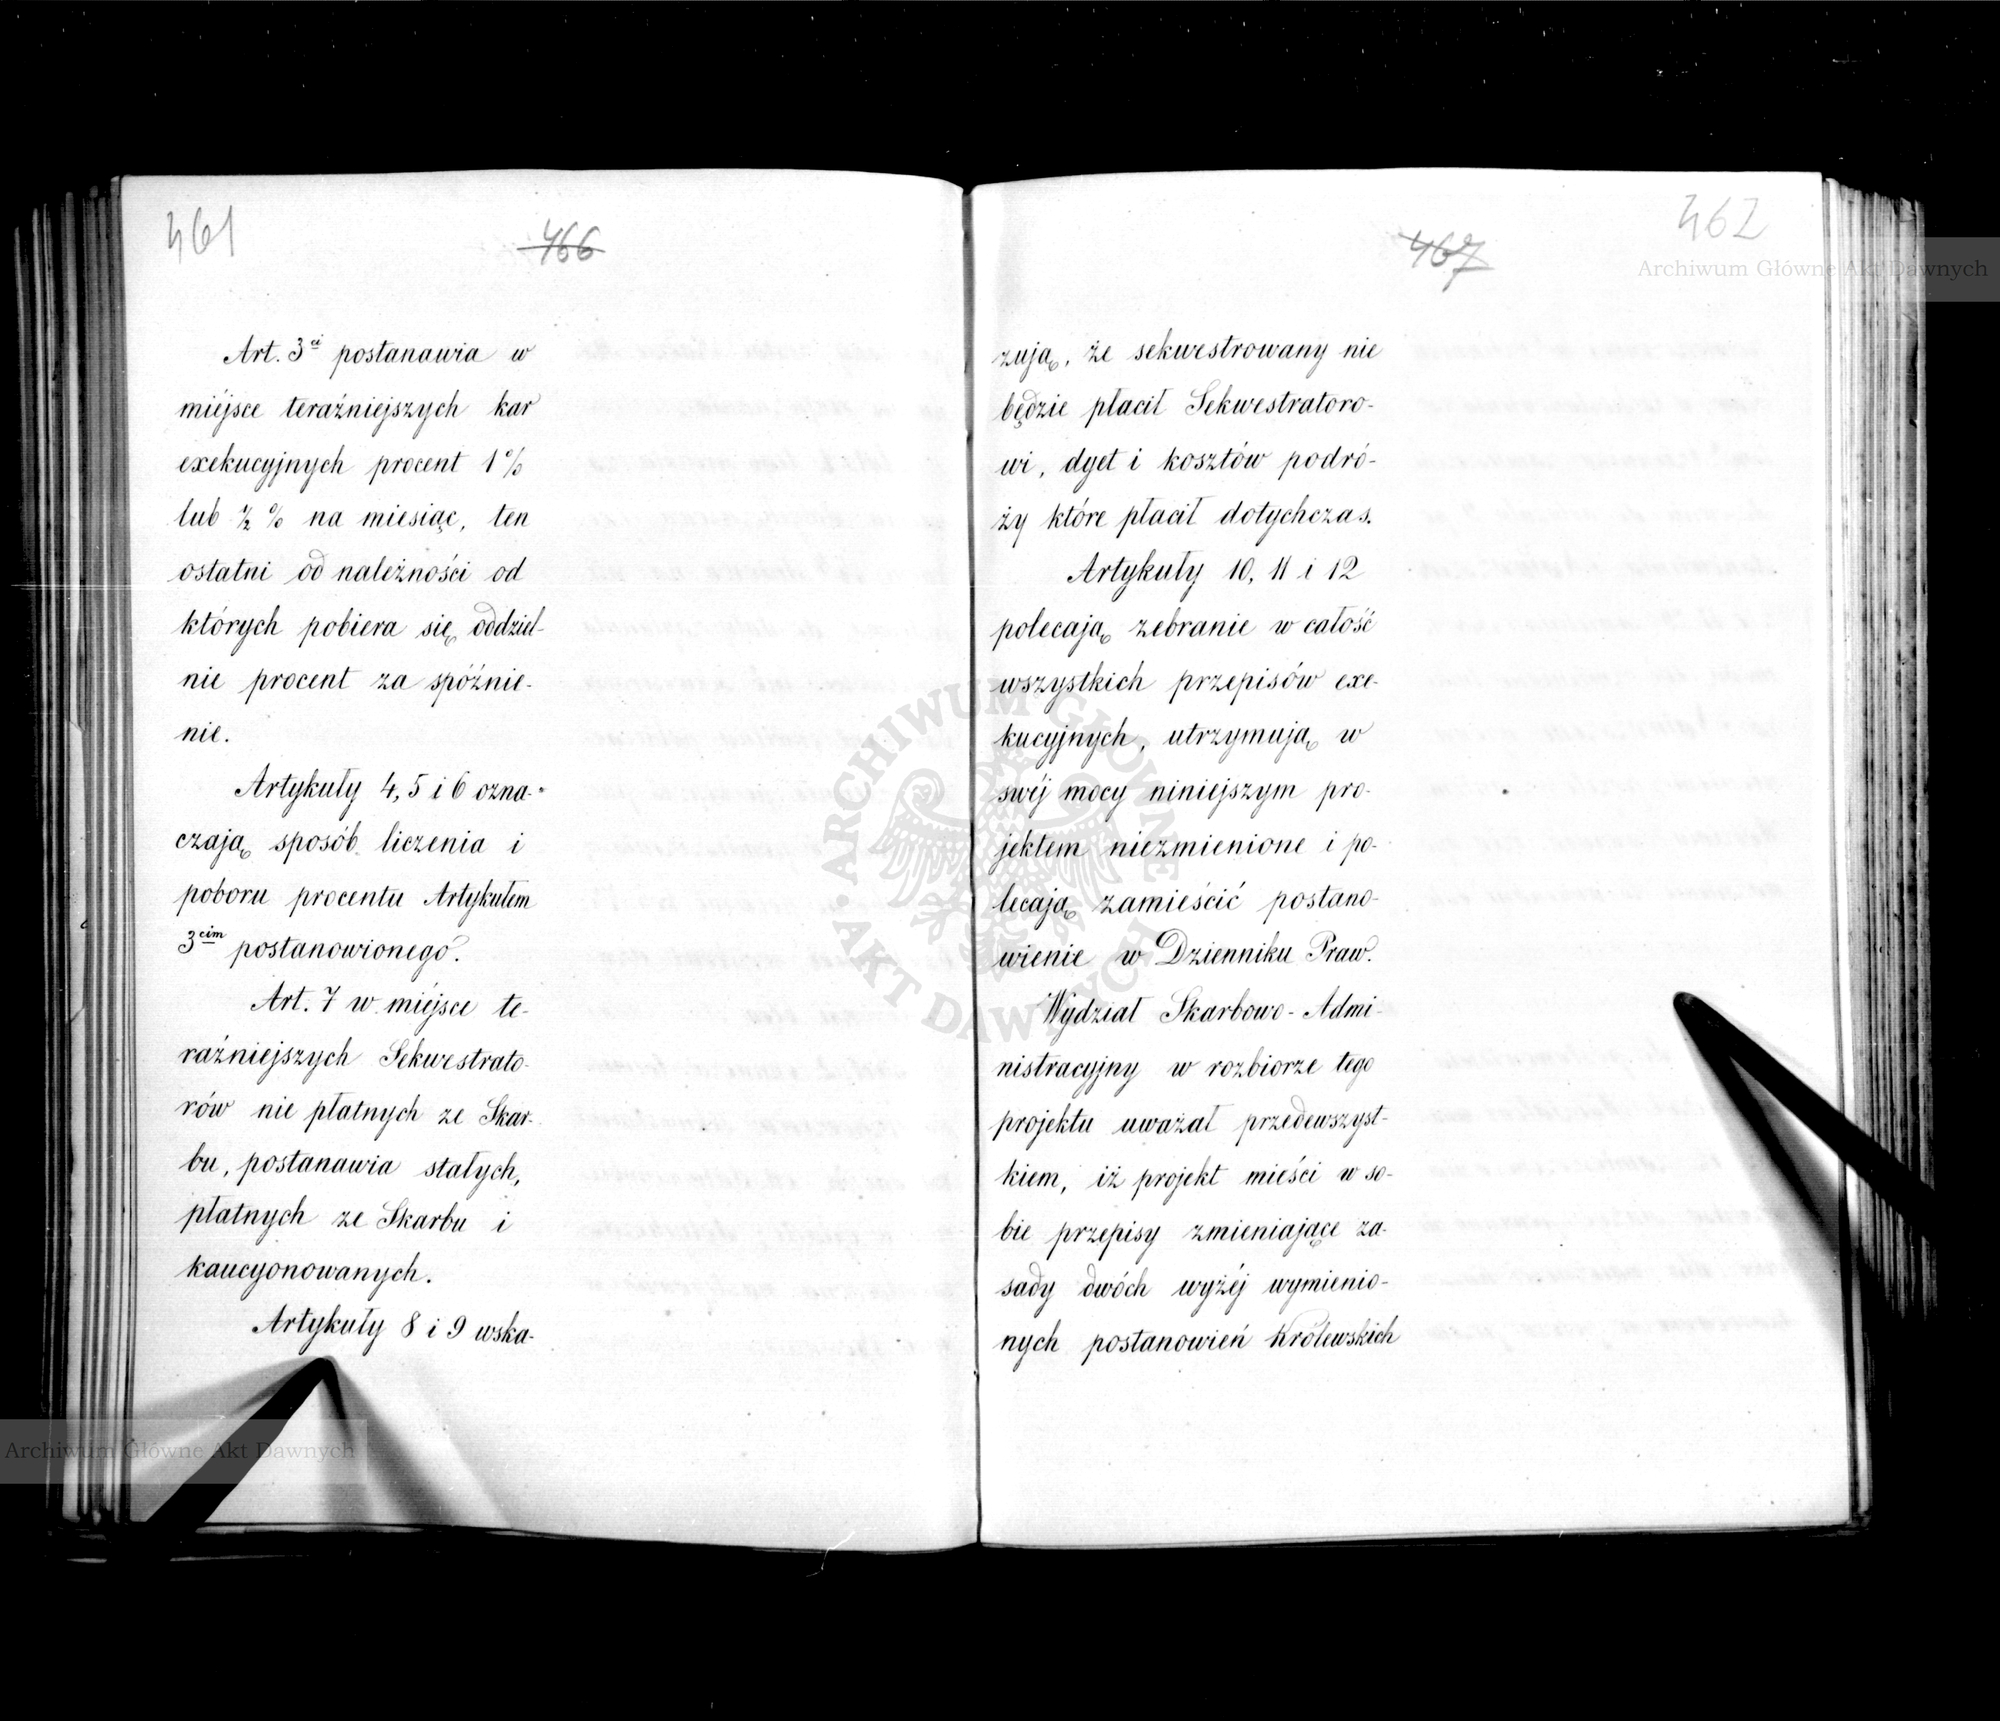 461
466
Art. 3ci postanawia w
miéjsce teraźniejszych kar
exekucyjnych procent 1%
lub ½ % na miesiąc, ten
ostatni od należności od
których pobiera się oddziel-
nie procent za spóźnie-
nie.
Artykuły 4, 5 i 6 ozna-
czają sposób liczenia i
poboru procentu Artykułem
3cim postanowionego.
Art. 7 w miéjsce te-
raźniejszych Sekwestrato-
rów nie płatnych ze Skar-
bu, postanawia stałych,
płatnych ze Skarbu i
kaucyonowanych.
Artykuły 8 i 9 wska-
462
467
zują, że sekwestrowany nie
będzie płacił Sekwestratoro-
wi, dyet i kosztów podró-
ży które płacił dotychczas.
Artykuły 10, 11 i 12
polecają zebranie w całość
wszystkich przepisów exe-
kucyjnych, utrzymują w
swéj mocy niniejszym pro-
jektem niezmienione i po-
lecają zamieścić postano-
wienie w Dzienniku Praw.
Wydział Skarbowo-Admi-
nistracyjny w rozbiorze tego
projektu uważał przedewszyst-
kiem, iż projekt mieści w so-
bie przepisy zmieniające za-
sady dwóch wyżéj wymienio-
nych postanowień Królewskich
Archiwum Główne Akt Dawnych
Archiwum Główne Akt Dawnych
ARCHIWUM GŁÓWNE AKT DAWNYCH